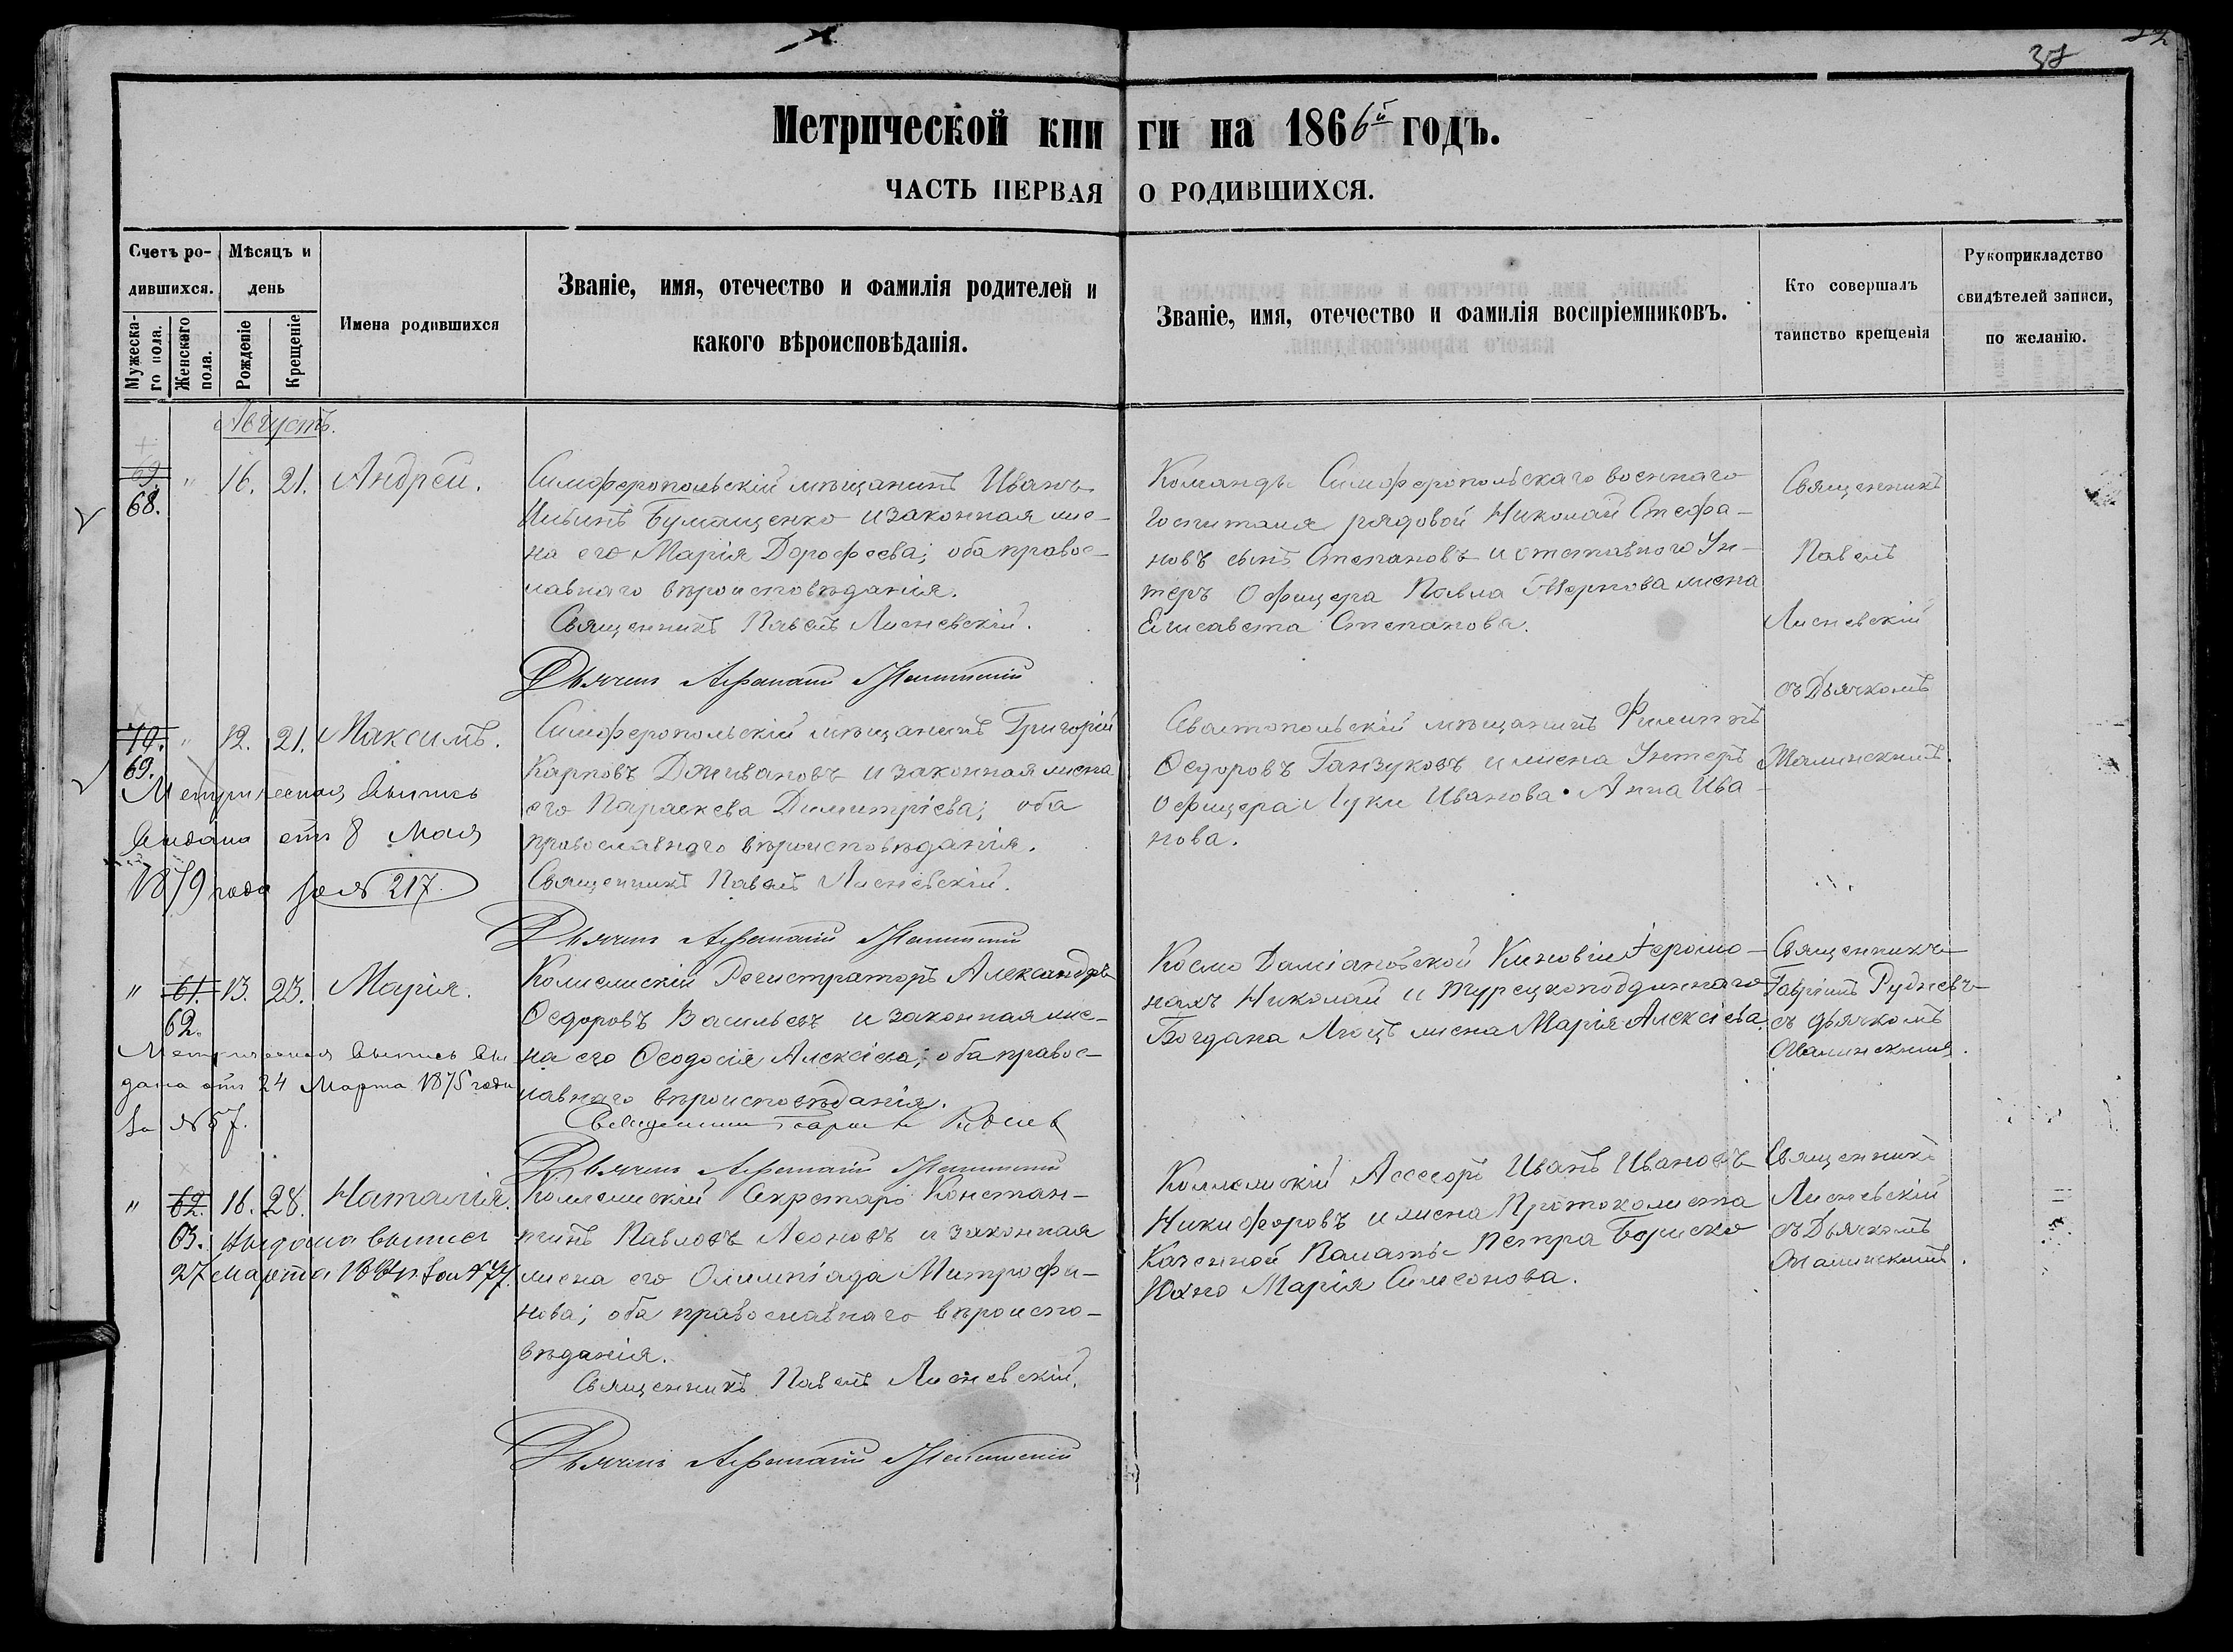 38
Метрической кни ги на 1866й годъ.
ЧАСТЬ ПЕРВАЯ О РОДИВШИХСЯ.
Счетъ ро-
дившихся.
Мужеска-
го пола.
Женскаго
пола.
Мѣсяцъ и
день
Рожденіе
Крещеніе
Имена родившихся
Званіе, имя, отечество и фамилія родителей и
какого вѣроисповѣданія.
Званіе, имя, отечество и фамилія воспріемниковъ.
Кто совершалъ
таинство крещенія
Рукоприкладство
свидѣтелей записи,
по желанію.
Августъ.
69.
68.
" 16. 21. Андрей.
Симферопольскій мѣщанинъ Иванъ
законная же-
на его Марія Дорофеева; оба правос-
лавнаго вѣроисповѣданія.
Священникъ Павелъ Лисневскій.
Дьячекъ
Команды Симферопольскаго военнаго
Госпиталя рядовой Николай Стефа-
новъ сынъ Степановъ и отставного Ун-
теръ Офицера Павла жена
Елисавета Степанова.
Священникъ
Павелъ
Лисневскій
съ Дьячкомъ
70.
69.
" 12. 21. Максимъ.
Метрическая выпись
выдана отъ 8 Мая
1879 года за № 217.
Симферопольскій мѣщанинъ Григорій
Карповъ Дживановъ и законная жена
его Параскева Димитріева; оба
православнаго вѣроисповѣданія.
Священникъ Павелъ Лисневскій.
Дьячекъ
Севастопольскій мѣщанинъ Филиппъ
Ѳедоровъ Ганзуковъ и жена Унтеръ
офицера Луки Иванова Анна Ива-
нова.
" 61. 13. 23. Марія.
62.
Метрическая выпись вы
дана отъ 24 Марта 1875 года
за № 57.
Коллежскій Регистраторъ Александръ
Ѳедоровъ Васильевъ и законная же-
на его Ѳеодосія Алексіева; оба правос-
лавнаго вѣроисповѣданія.
Священникъ
Дьячекъ
Космо Даміановской Киновіи Іеромо-
нахъ Николай и Турецкоподданнаго
Богдана жена Марія Алексіева.
Священникъ
Гавріилъ Рудневъ
съ дьячкомъ
" 62. 16. 28. Наталія.
63. Выдана выпись
27 Марта
Коллежскій Секретарь Констан-
тинъ Павловъ Леоновъ и законная
жена его Олимпіада Митрофа-
нова; оба православнаго вѣроиспо-
вѣданія.
Священникъ Павелъ Лисневскій.
Дьячекъ
Коллежскій Ассесоръ Иванъ Ивановъ
Никифоровъ и жена Протоколиста
Казенной Палаты Петра
Марія Симеонова.
Священникъ
Лисневскій
съ Дьячкомъ